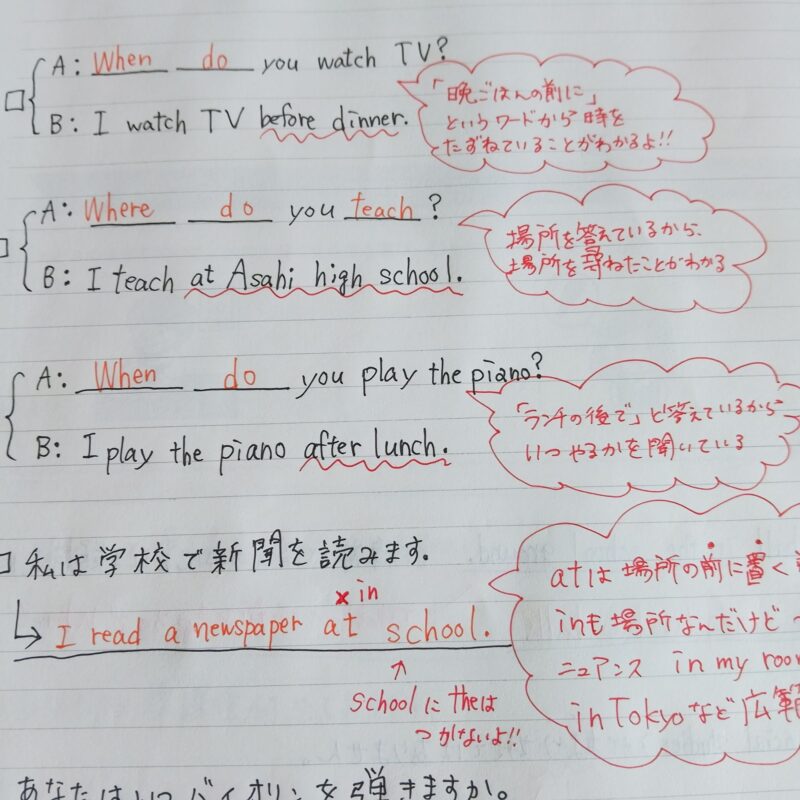 A: When do you watch TV?
B: I watch TV before dinner.
「晩ごはんの前に」
というワードから時を
たずねていることがわかるよ!!
A: Where do you teach?
B: I teach at Asahi high school.
場所を答えているから、
場所を尋ねたことがわかる
A: When do you play the piano?
B: I play the piano after lunch.
「ランチの後で」と答えているから
いつやるかを聞いている
私は学校で新聞を読みます。
× in
I read a newspaper at school.
schoolにtheは
つかないよ!!
atは場所の前に置く
inも場所なんだけど
ニュアンス in my room
in Tokyoなど広範
あなたはいつバイオリンを弾きますか。